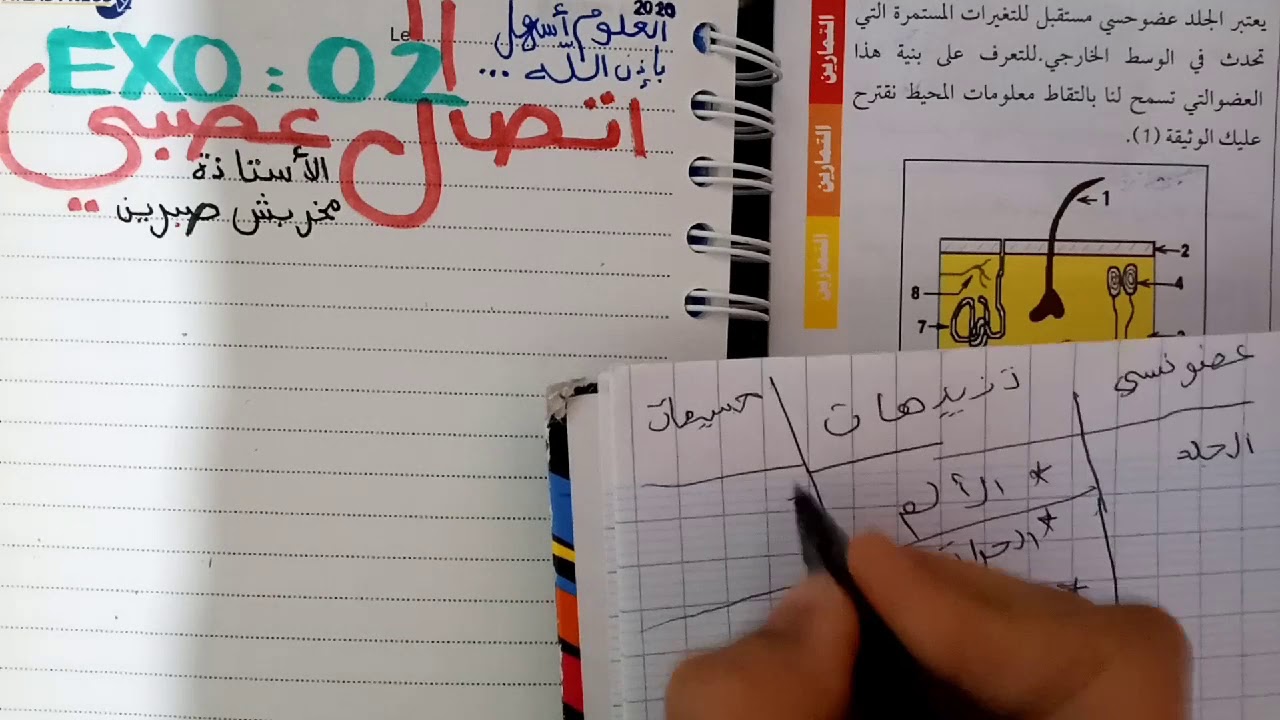 2020
Le
العلوم أسهل
بإذن الله ...
EXO : 02
اتصال عصبي
الأستاذة
مخربش صبرين
التمارين
التمارين
التمارين
يعتبر الجلد عضوحسي مستقبل للتغيرات المستمرة التي
تحدث في الوسط الخارجي.للتعرف على بنية هذا
العضوالتي تسمح لنا بالتقاط معلومات المحيط نقترح
عليك الوثيقة (1).
1
2
8
4
7
عضو حسي
تنبيهات
حسيمات
الجلد
* الألم
* الحرارة
*